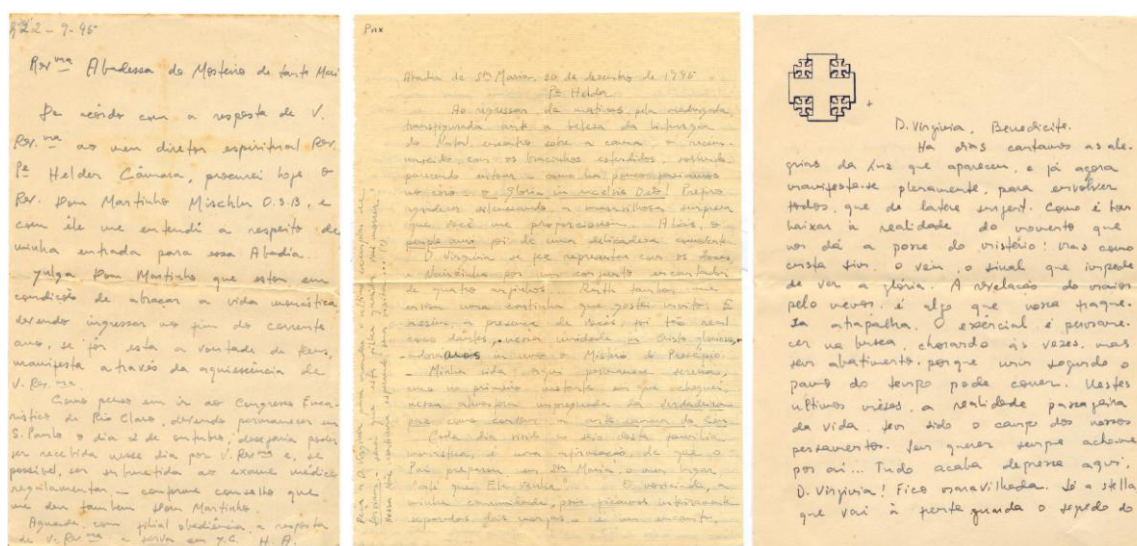 22-9-45
Rev ma Abadessa do Mosteiro de Santa Mari
De acôrdo com a resposta de V.
Rev.ma ao meu diretor espiritual Rev.
Pe Helder Câmara, procurei hoje o
Rev. Dom Martinho Michler O.S.B, e
com êle me entendi a respeito de
minha entrada para essa Abadia.
Julga Dom Martinho que estou em
condição de abraçar a vida monástica
devendo ingressar no fim do corrente
ano, se fôr esta a vontade de Deus,
manifesta através da aquiescência de
V. Rev.ma.
Como penso em ir ao Congresso Euca-
rístico de Rio Claro, devendo permanecer em
S. Paulo o dia 2 de outubro, desejaria poder
ser recebida nesse dia por V. Rev ma e, se
possível, ser submetida ao exame médico
regulamentar – conforme conselho que
me deu tambem Dom Martinho.
Aguada, com filial obediência, a resposta
de V. Rev.ma a serva em J.C. H.A.
Pax
Abadia de Sta Maria, 30 de dezembro de 1945
Pe Helder
Ao regressar de matinas pela madrugada,
transfigurada ante a beleza da liturgia
do Natal, encontro sobre a cama, o recem-
nascido, com os bracinhos estendidos,
parecendo
no côro: o gloria in excelsis Deo! Prefiro
agradecer silenciando, a maravilhosa surpresa
que você me proporcionou. Aliás, o
foi de uma delicadeza comovente.
D. Virginia se fez representar com os doces,
e Nairzinha por um conjunto encantador
de quatro anjinhos. Ruth tambem me
enviou uma cartinha que gostei muito. E
assim, a presença de vocês, foi tão real
como dantes, nessa unidade in Christo gloriosa,
adoramos in uno o Mistério do Presépio.
– Minha vida aqui permanece serena,
como no primeiro instante em que cheguei,
nessa atmosfera impregnada da verdadeira
pax
Cada dia vivido no seio desta família
monástica, é uma afirmação de que o
Pai preparou em Sta Maria, o meu lugar,
"até que Ele venha". O noviciado, a
minha comunidade, pois ficamos inteiramente
separadas das monjas – é um encanto,
D. Virginia, Benedicite.
Há dias cantamos as ale-
grias da luz que apareceu, e já agora
manifesta-se plenamente, para envolver
todos, que de latere surgent. Como é bom
baixar à realidade do momento que
nos dá a posse do mistério! Mas como
custa sim. O véu, o sinal que impede
de ver a glória. A revelação do maior
pelo menos, é algo que nossa fraque-
za atrapalha. O essencial é permane-
cer na busca, chorando às vezes, mas
sem abatimento, porque unir segundo o
passo do tempo pode cansar. Nestes
últimos mêses, a realidade passageira
da vida tem sido o campo dos nossos
pensamentos. Sem querer sempre achamos
por aí... Tudo acaba depressa aqui,
D. Virginia! Fico maravilhada. Só a stella
que vai à frente guarda o segredo do